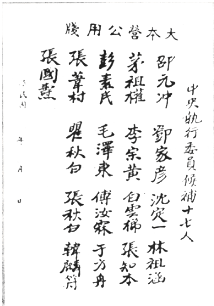 大本營公用牋
中央執行委員候補十七人
邵元冲 鄧家彥 沈定一 林祖涵
茅祖權 李宗黃 白雲梯 張知本
彭素民 毛澤東 傅汝霖 于方舟
張葦村 瞿秋白 張秋白 韓麟符
張國燾
年 月 日